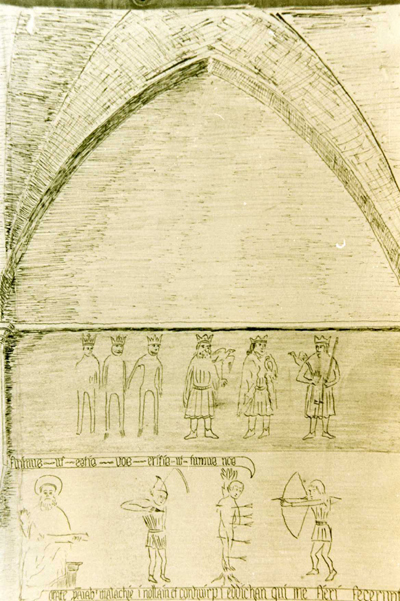 fuimus ut estis vos eritis ut sumus nos
malachie i nollain et conhuirp i eddichan qui me fieri fecerunt